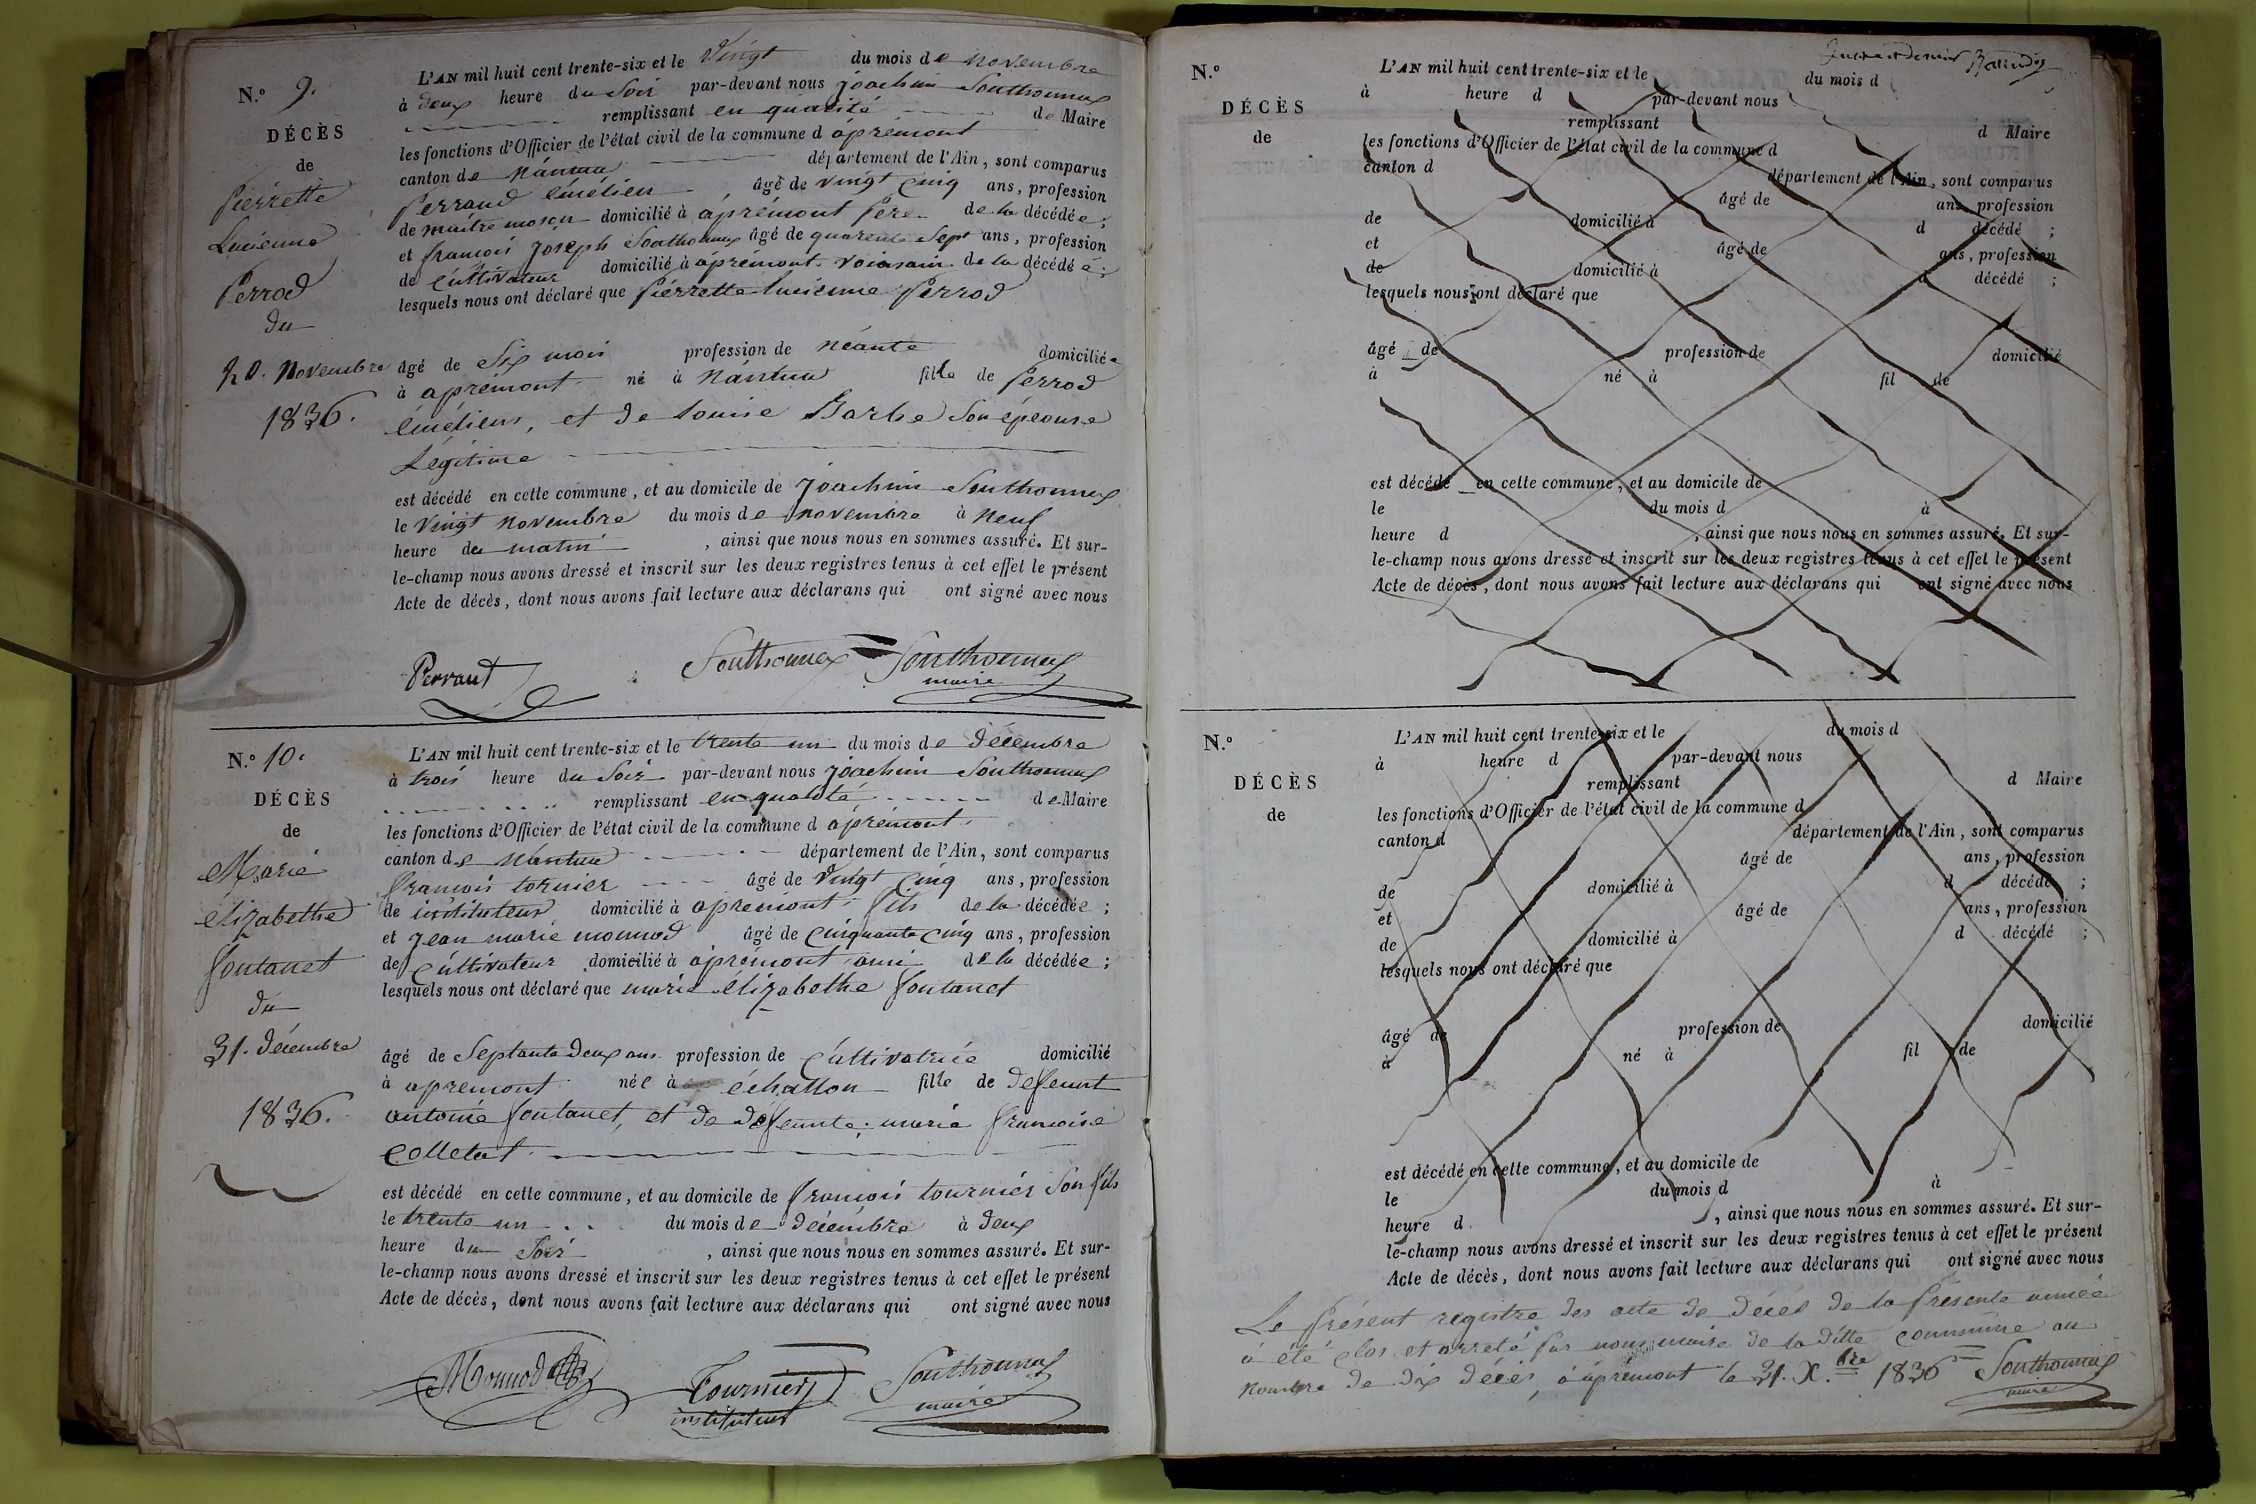 N.º 9.
DÉCÈS
de
Pierrette
Lucienne
Perrod
du
20. Novembre
1836.
L'AN mil huit cent trente-six et le Vingt du mois de Novembre
à deux heure du Soir par-devant nous joachim Southonnax
remplissant en qualité de Maire
les fonctions d'Officier de l'état civil de la commune d'aprémont
canton de Nantua département de l'Ain, sont comparus
Perraud émélien âgé de vingt cinq ans, profession
de maitre maçon domicilié à aprémont père de la décédée;
et françois joseph Southonnax âgé de quarente Sept ans, profession
de cultivateur domicilié à aprémont voisain de la décédée;
lesquels nous ont déclaré que Pierrette Lucienne Perrod
âgé de Six mois profession de néante domiciliée
à aprémont né à Nantua fille de Perrod
émélien, et de Louise Barbe Son épeouse
Légitime
est décédé en cette commune, et au domicile de joachim Southonnax
le Vingt novembre du mois de novembre à neuf
heure du matin, ainsi que nous nous en sommes assuré. Et sur-
le-champ nous avons dressé et inscrit sur les deux registres tenus à cet effet le présent
Acte de décès, dont nous avons fait lecture aux déclarans qui ont signé avec nous
Perraut Southonnax Southonnax
maire
N.º 10.
DÉCÈS
de
Marie
élizabethe
fontanet
du
31. décembre
1836.
L'AN mil huit cent trente-six et le trente un du mois de décembre
à trois heure du Soir par-devant nous joachim Southonnax
remplissant en qualité de Maire
les fonctions d'Officier de l'état civil de la commune d'aprémont
canton de Nantua département de l'Ain, sont comparus
françois tornier âgé de Vingt Cinq ans, profession
de instituteur domicilié à aprémont fils de la décédée;
et jean marie monnod âgé de Cinquante Cinq ans, profession
de Cultivateur domicilié à aprémont ami de la décédée;
lesquels nous ont déclaré que marie élizabethe fontanet
âgé de Septante deux ans profession de Cultivatrice domicilié
à aprémont née à échallon fille de deffeunt
antoine fontanet, et de deffeunte marie françoise
Colletat
est décédé en cette commune, et au domicile de françois tournier Son fils
le trente un du mois de décembre à deux
heure du Soir, ainsi que nous nous en sommes assuré. Et sur-
le-champ nous avons dressé et inscrit sur les deux registres tenus à cet effet le présent
Acte de décès, dont nous avons fait lecture aux déclarans qui ont signé avec nous
Monnod Tournier Southonnax
instituteur maire
N.º
DÉCÈS
de
L'AN mil huit cent trente-six et le du mois d
à heure d par-devant nous
remplissant d Maire
les fonctions d'Officier de l'état civil de la commune d
canton d département de l'Ain, sont comparus
âgé de ans, profession
de domicilié à d décédé ;
et âgé de ans, profession
de domicilié à d décédé ;
lesquels nous ont déclaré que
âgé de profession de domicilié
à né à fil de
est décédé en cette commune, et au domicile de
le du mois d à
heure d , ainsi que nous nous en sommes assuré. Et sur-
le-champ nous avons dressé et inscrit sur les deux registres tenus à cet effet le présent
Acte de décès, dont nous avons fait lecture aux déclarans qui ont signé avec nous
N.º
DÉCÈS
de
L'AN mil huit cent trente-six et le du mois d
à heure d par-devant nous
remplissant d Maire
les fonctions d'Officier de l'état civil de la commune d
canton d département de l'Ain, sont comparus
âgé de ans, profession
de domicilié à d décédé ;
et âgé de ans, profession
de domicilié à d décédé ;
lesquels nous ont déclaré que
âgé de profession de domicilié
à né à fil de
est décédé en cette commune, et au domicile de
le du mois d à
heure d , ainsi que nous nous en sommes assuré. Et sur-
le-champ nous avons dressé et inscrit sur les deux registres tenus à cet effet le présent
Acte de décès, dont nous avons fait lecture aux déclarans qui ont signé avec nous
Le présent registre des acte de décès de la présente année
a été clos et arreté par nous maire de la ditte commune au
Nombre de dix décès, à aprémont le 31. X.bre 1836 Southonnax
maire